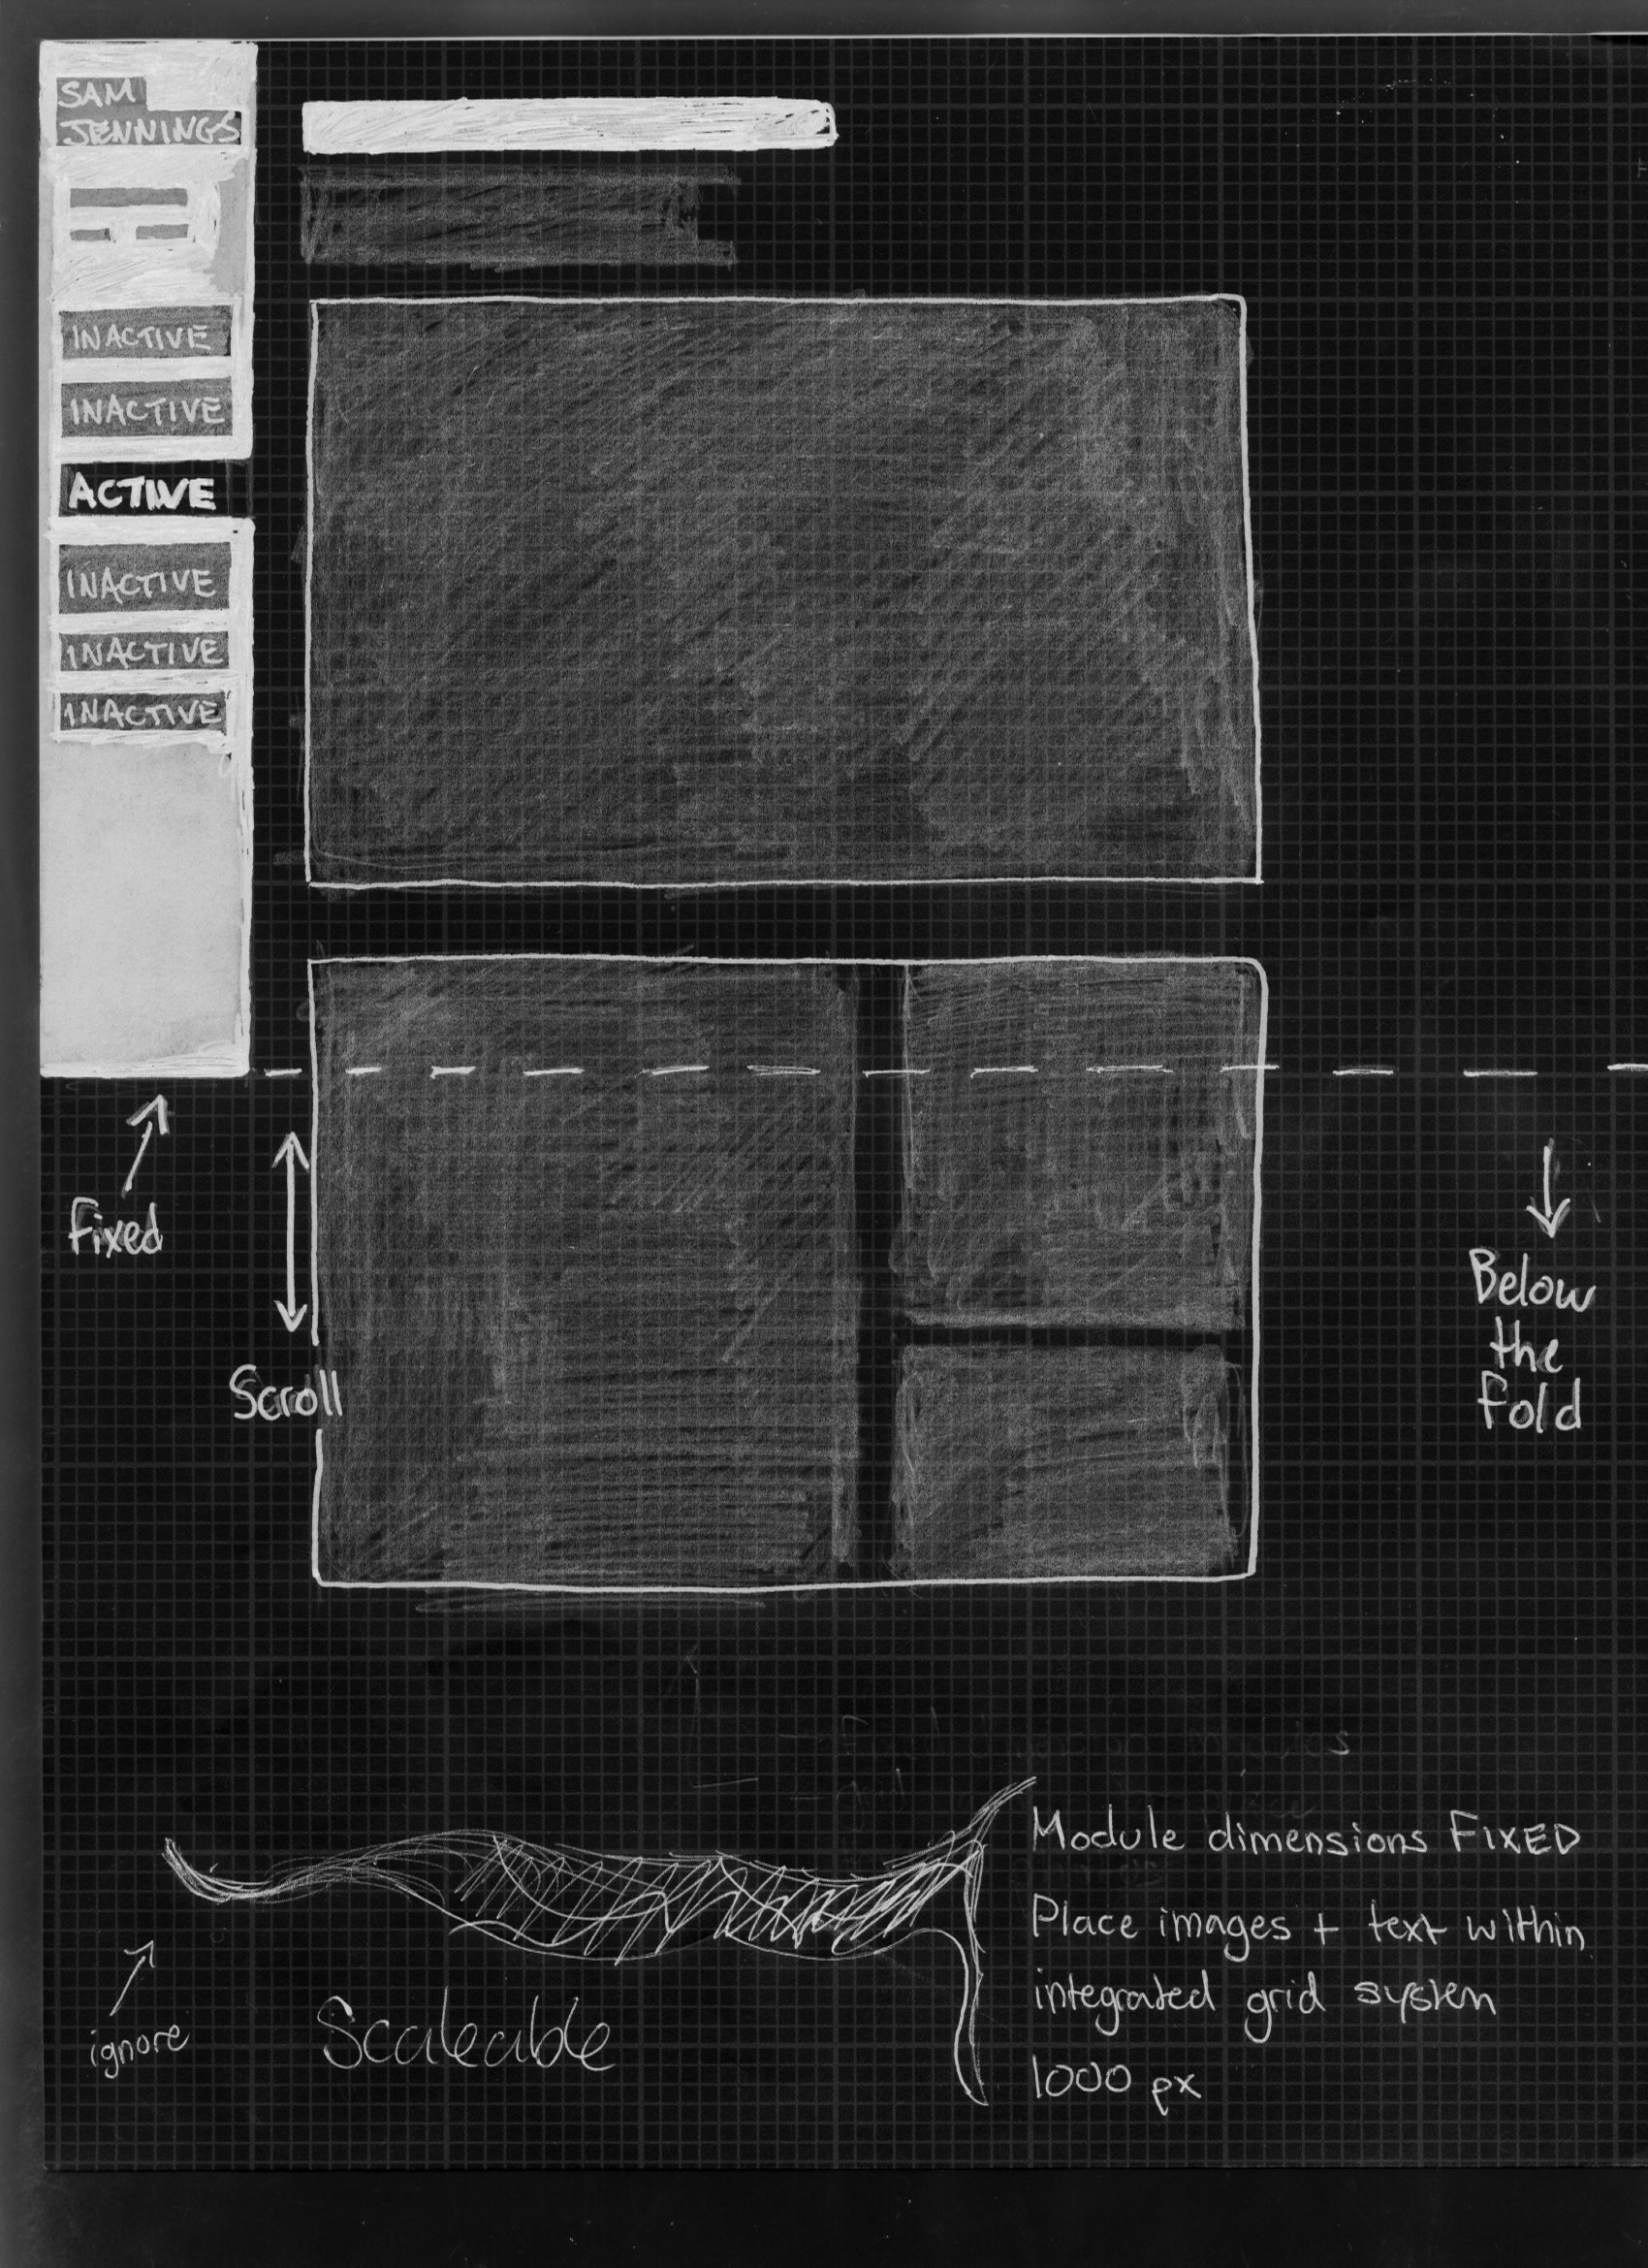 SAM
JENNINGS
INACTIVE
INACTIVE
ACTIVE
INACTIVE
INACTIVE
INACTIVE
Fixed
Scroll
Below
the
fold
Module dimensions FIXED
Place images + text within
integrated grid system
1000 px
ignore
Scaleable